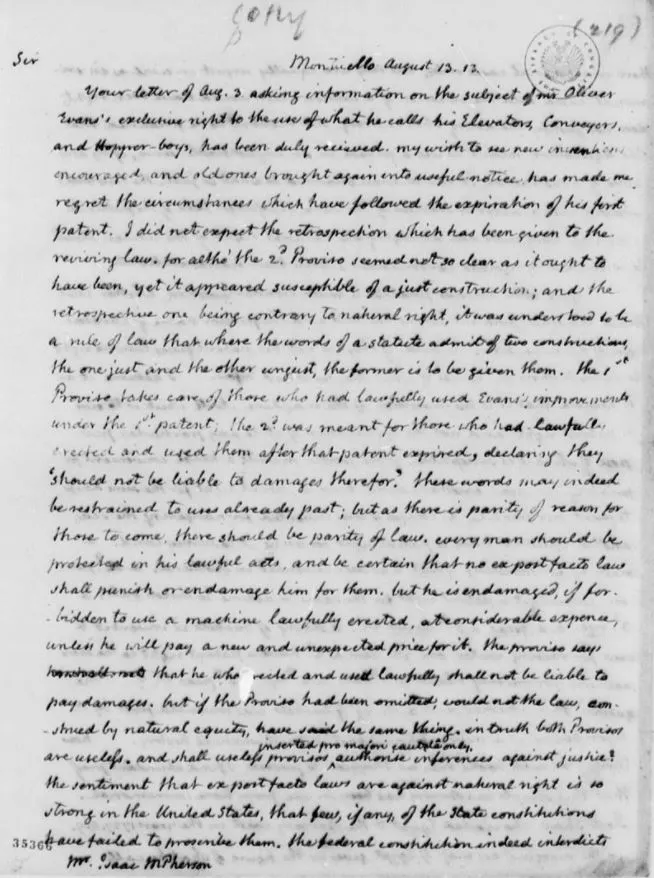 copy
(219)
Sir
Monticello August 13. 13.
Your letter of Aug. 3. asking information on the subject of mr Oliver
Evans's exclusive right to the use of what he calls his Elevators, Conveyers,
and Hopper-boys, has been duly recieved. my wish to see new inventions
encouraged, and old ones brought again into useful notice, has made me
regret the circumstances which have followed the expiration of his first
patent. I did not expect the retrospection which has been given to the
reviving law. for altho' the 2d. Proviso seemed not so clear as it ought to
have been, yet it appeared susceptible of a just construction; and the
retrospective one being contrary to natural right, it was understood to be
a rule of law that where the words of a statute admit of two constructions,
the one just and the other unjust, the former is to be given them. the 1st
Proviso takes care of those who had lawfully used Evans's improvements
under the 1st. patent; the 2d. was meant for those who had lawfully
erected and used them after that patent expired, declaring they
'should not be liable to damages therefor.' these words may indeed
be restrained to uses already past; but as there is parity of reason for
those to come, there should be parity of law. every man should be
protected in his lawful acts, and be certain that no ex post facto law
shall punish or endamage him for them. but he is endamaged, if for-
-bidden to use a machine lawfully erected, at considerable expence,
unless he will pay a new and unexpected price for it. the proviso says
that he who erected and used lawfully shall not be liable to
pay damages. but if the Proviso had been omitted, would not the law, con-
-strued by natural equity, have said the same thing. in truth both Provisos
are useless. and shall useless provisos, inserted pro majori cautela only, authorise inferences against justice?
the sentiment that ex post facto laws are against natural right is so
strong in the United States, that few, if any, of the State constitutions
have failed to proscribe them. the federal constitution indeed interdicts
35366
Mr. Isaac McPherson